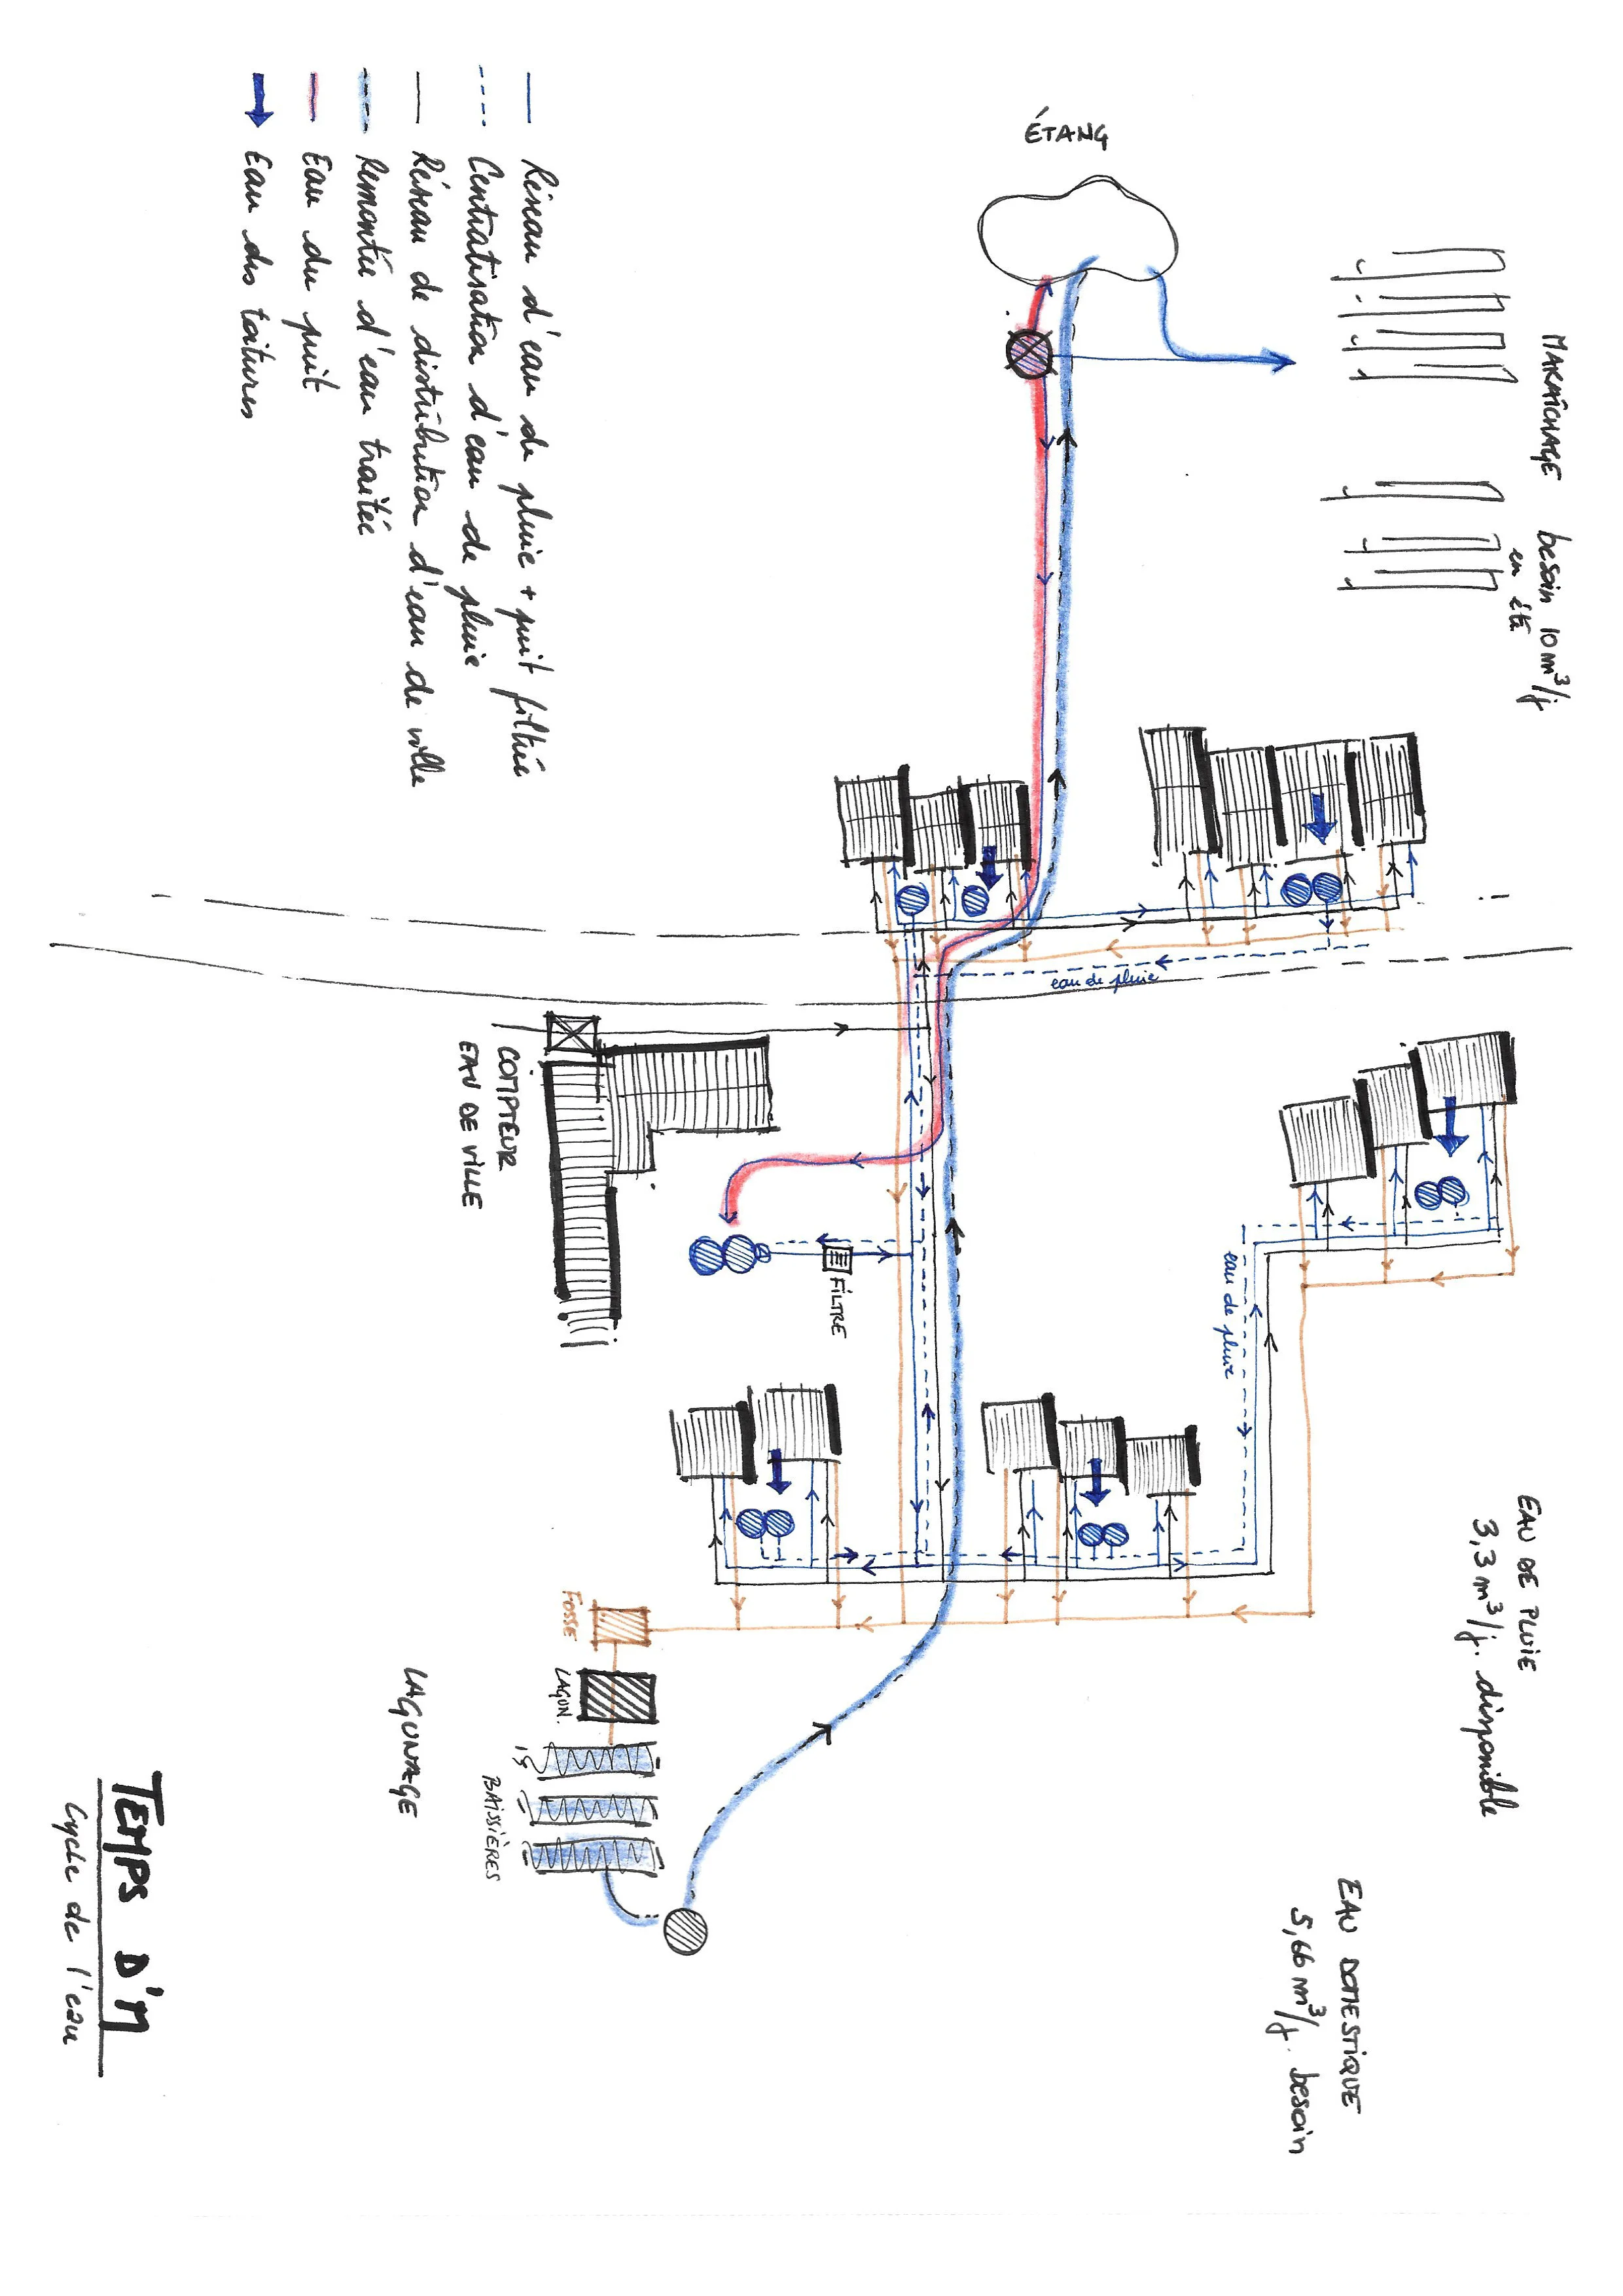 ÉTANG
MARAÎCHAGE besoin 10 m³/j
en été
Réseau d'eau de pluie + puit filtrée
Centralisation d'eau de pluie
Réseau de distribution d'eau de ville
Remontée d'eau traitée
Eau du puit
Eau des toitures
eau de pluie
COMPTEUR
EAU DE VILLE
FILTRE
eau de pluie
EAU DE PLUIE
3,3 m³/j. disponible
EAU DOMESTIQUE
5,66 m³/j. besoin
FOSSE
LAGUN.
BAISSIÈRES
LAGUNAGE
TEMPS D'M
Cycle de l'eau